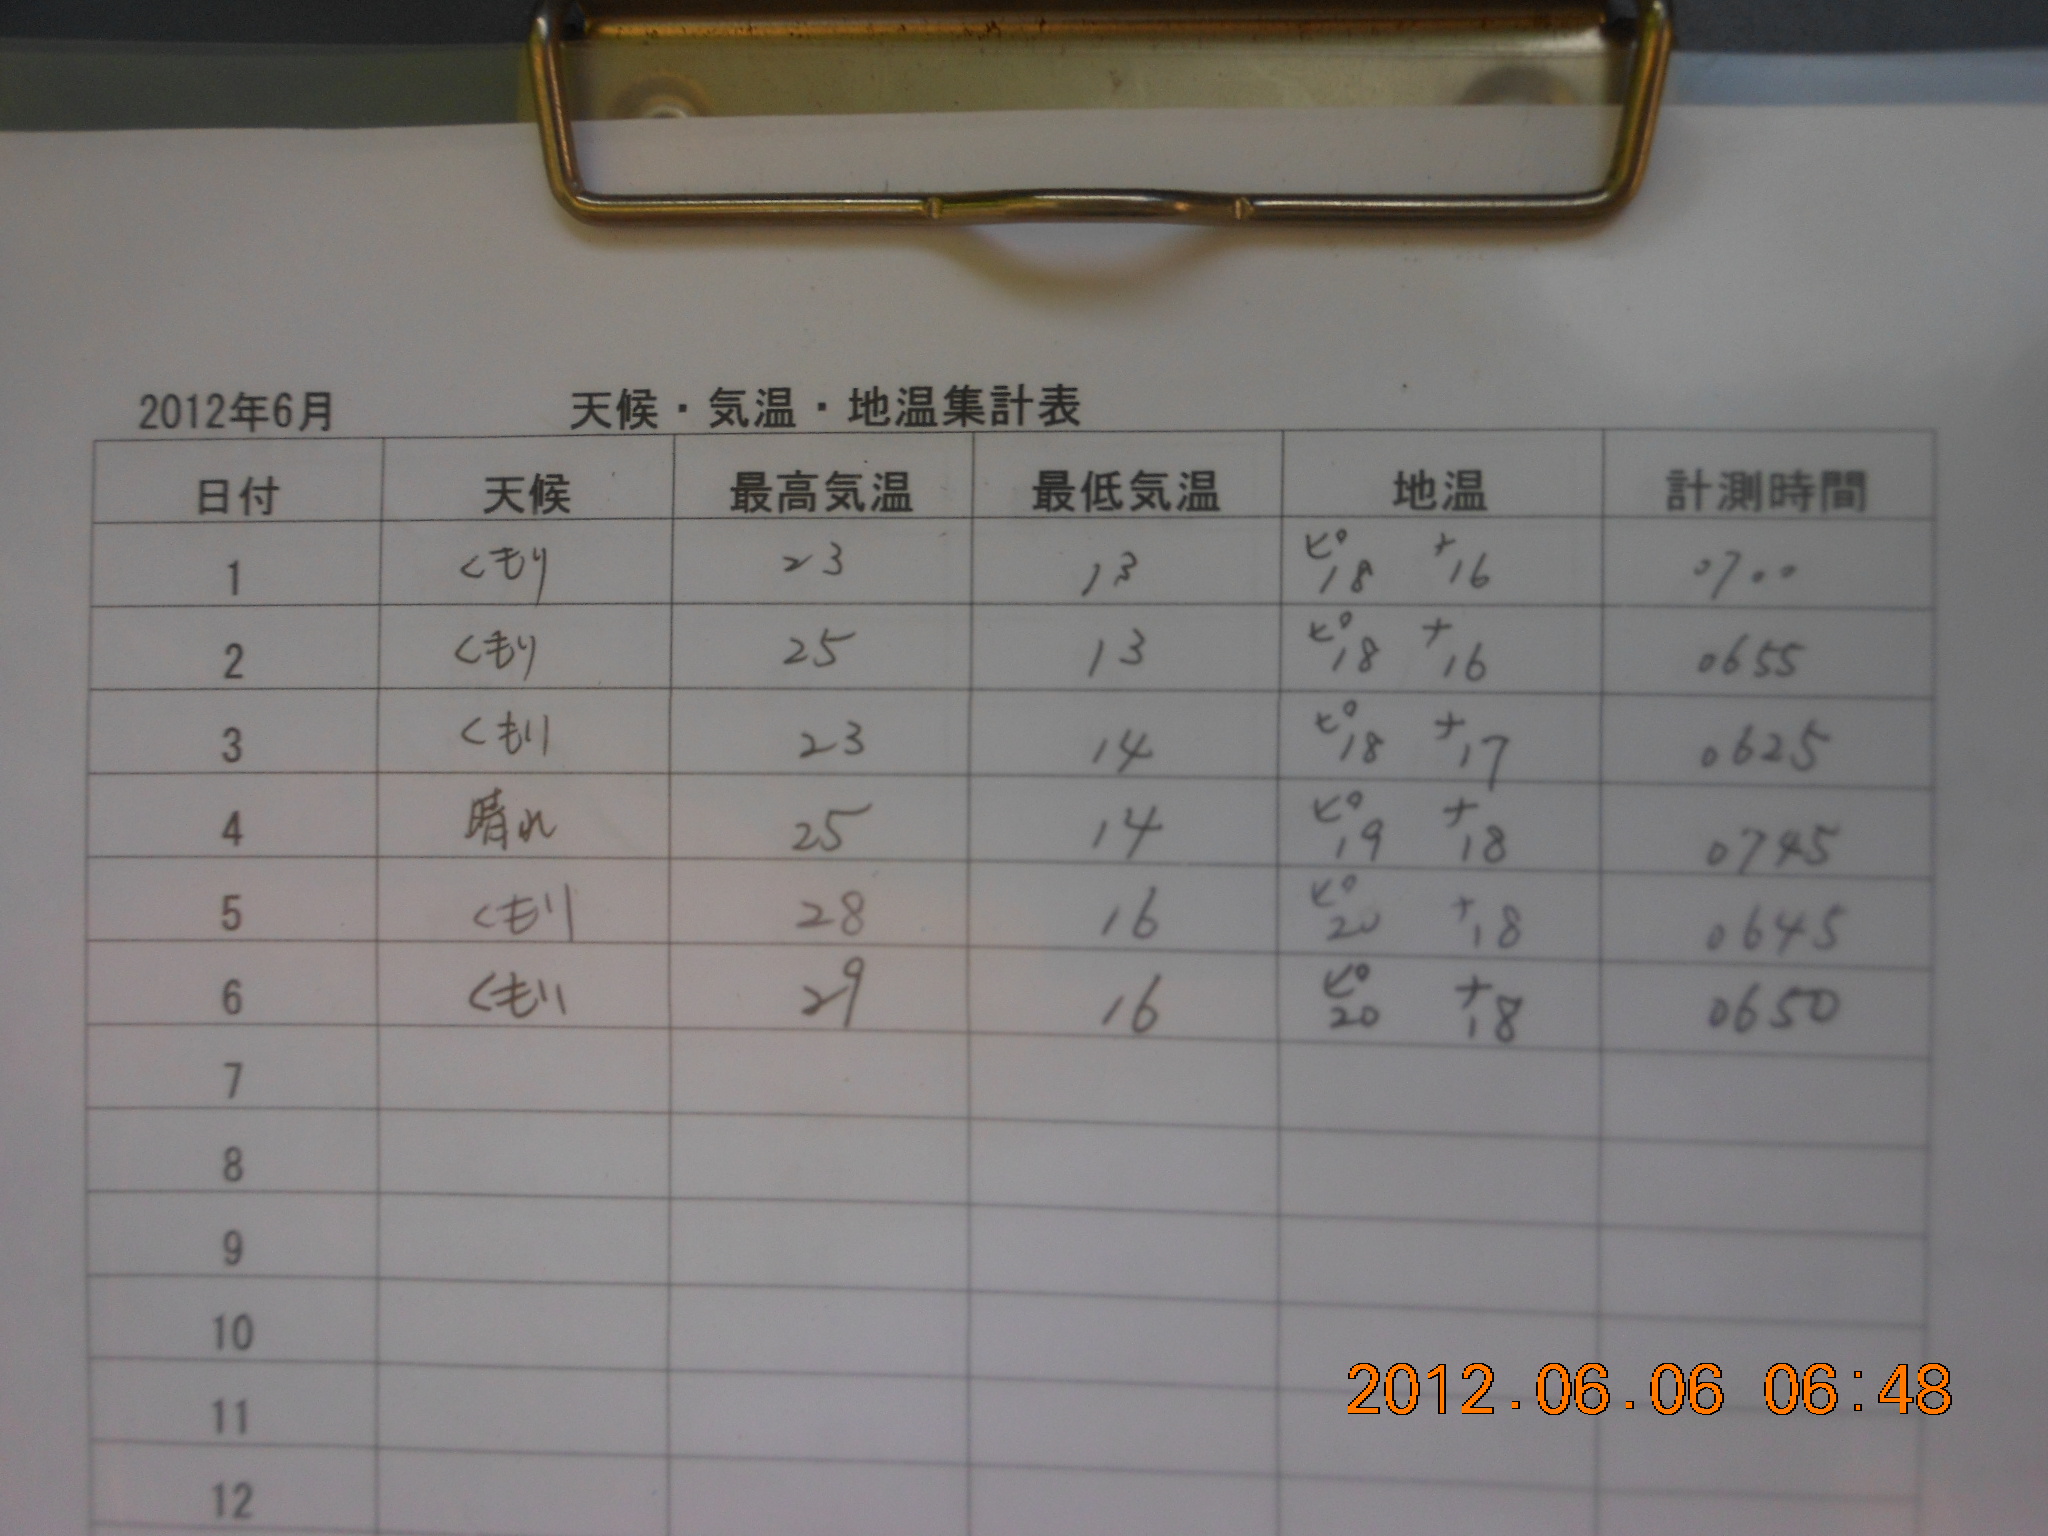 2012年6月 天候・気温・地温集計表
日付 天候 最高気温 最低気温 地温 計測時間
1 くもり 23 13 ピ18 ナ16 0700
2 くもり 25 13 ピ18 ナ16 0655
3 くもり 23 14 ピ18 ナ17 0625
4 晴れ 25 14 ピ19 ナ18 0745
5 くもり 28 16 ピ20 ナ18 0645
6 くもり 29 16 ピ20 ナ18 0650
7
8
9
10
11
12
2012.06.06 06:48